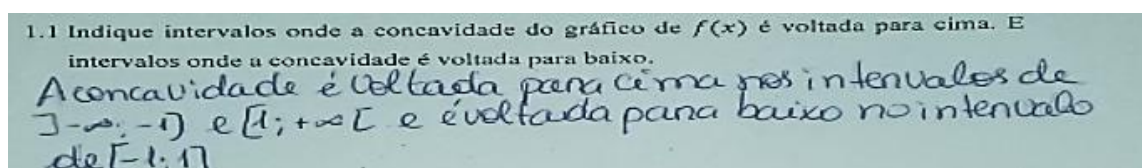 1.1 Indique intervalos onde a concavidade do gráfico de f(x) é voltada para cima. E
intervalos onde a concavidade é voltada para baixo.
A concavidade é voltada para cima nos intervalos de
]-∞; -1] e [1; +∞[ e é voltada para baixo no intervalo
de [-1; 1]